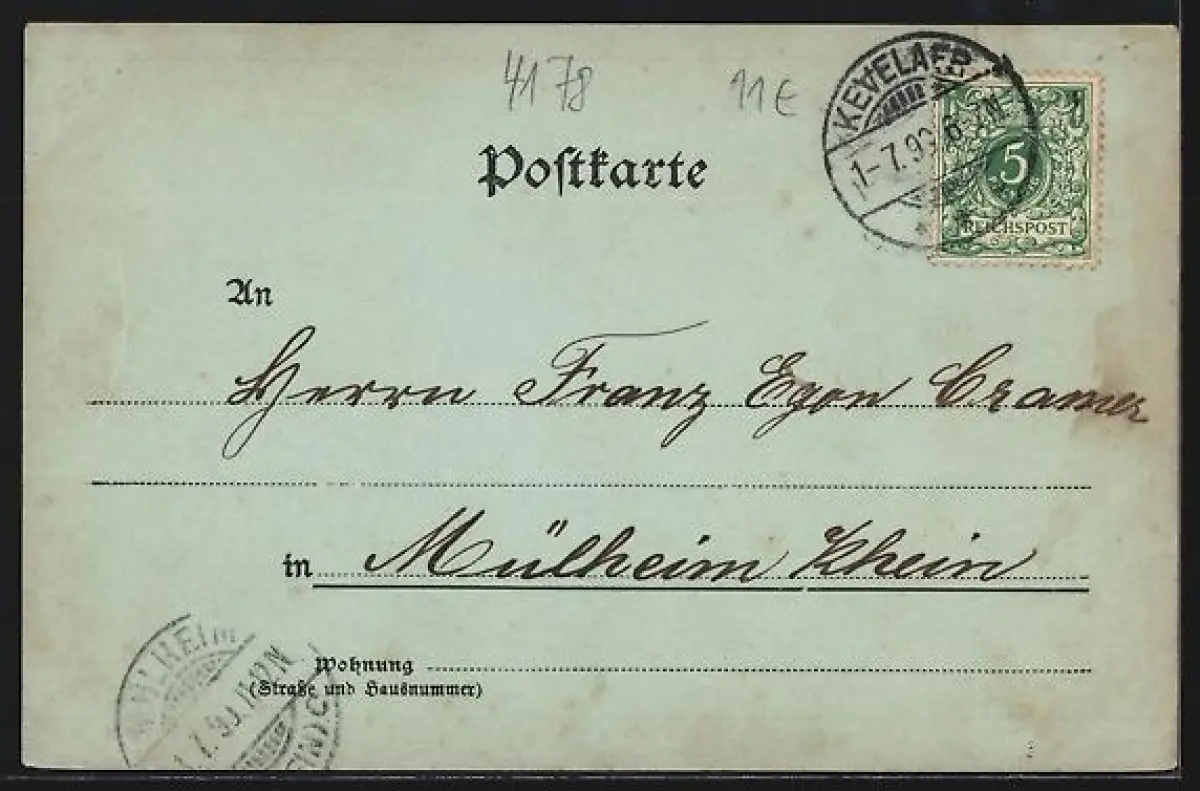 4178 11€
KEVELAER
1-7.99. 6-7N
5
REICHSPOST
Postkarte
An
Herrn Franz Egon Cramer
in Mülheim Rhein
Wohnung
(Straße und Hausnummer)
MÜLHEIM